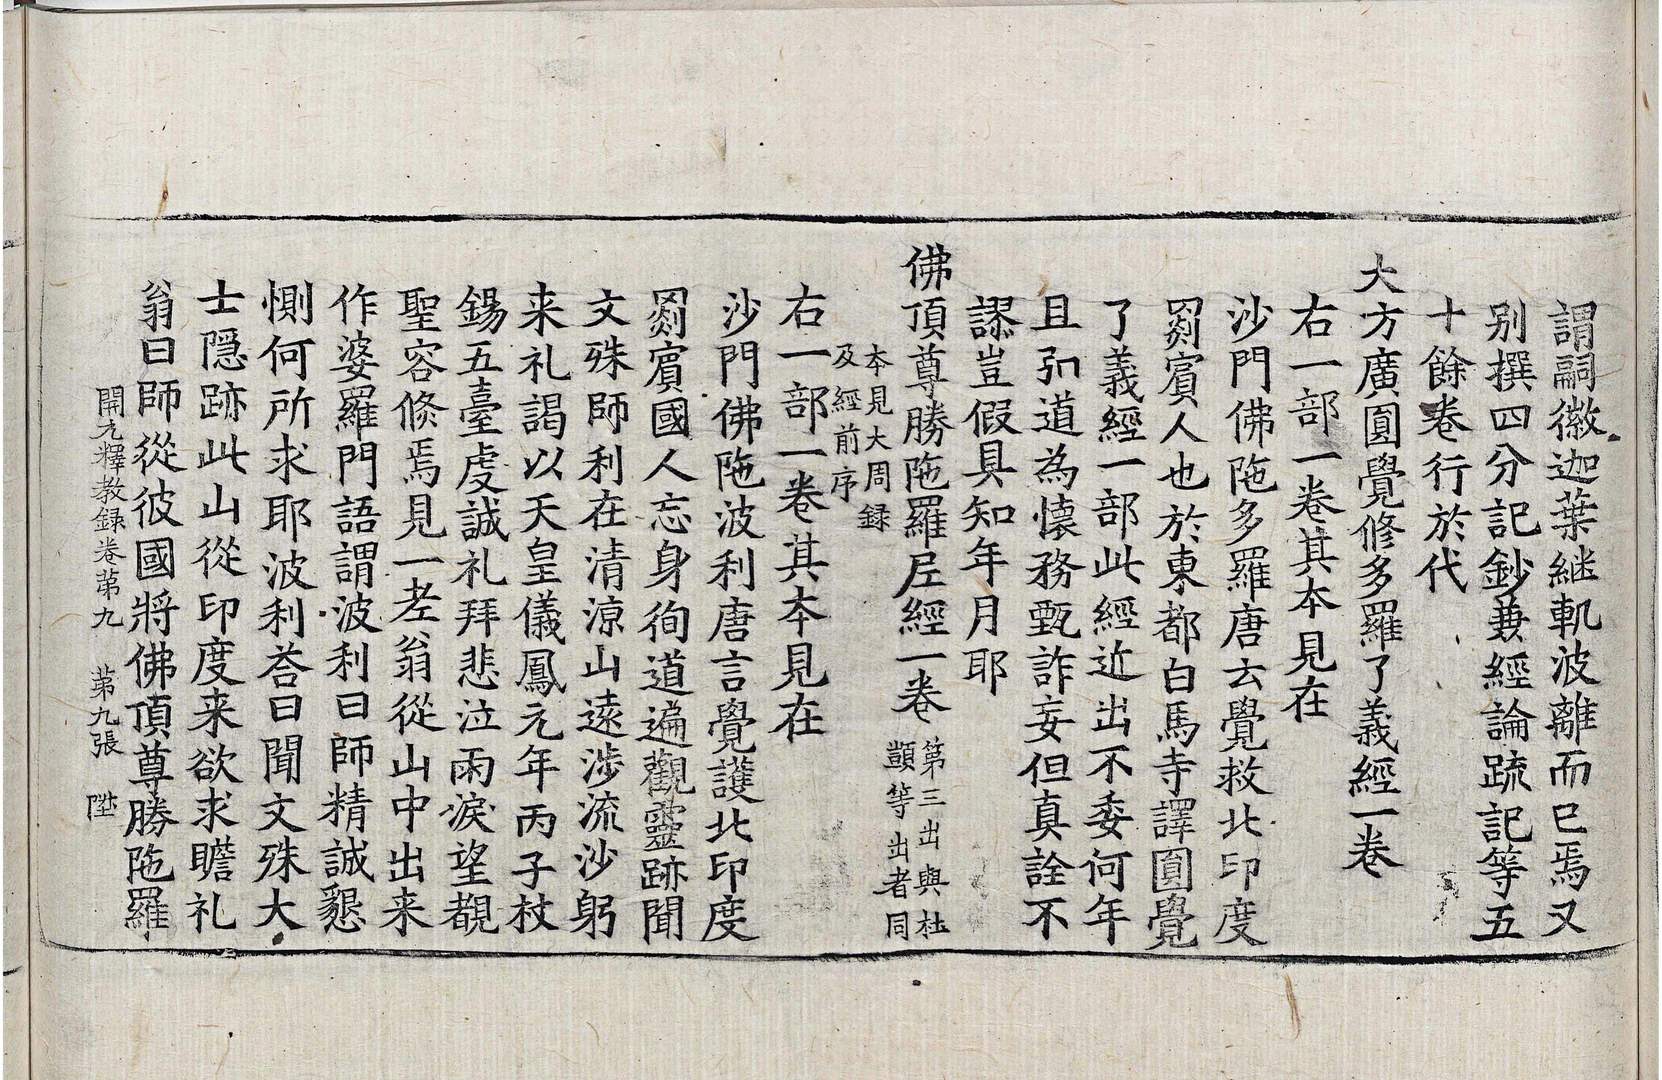 謂嗣徽迦葉継軌波離而已焉又
别撰四分記鈔兼經論䟽記等五
十餘卷行於代
大方廣圓覺修多羅了義經一卷
右一部一卷其本見在
沙門佛陁多羅唐云覺救北印度
罽賓人也於東都白馬寺譯圓覺
了義經一部此經近出不委何年
且弘道為懷務甄詐妄但真詮不
謬豈假具知年月耶
佛頂尊勝陁羅尼經一卷 第三出與杜
顗等出者同
本見大周録
及經前序
右一部一卷其本見在
沙門佛陁波利唐言覺護北印度
罽賓國人忘身徇道遍觀靈跡聞
文殊師利在清涼山遠涉流沙躬
来礼謁以天皇儀鳳元年丙子杖
錫五臺虔誠礼拜悲泣雨淚望覩
聖容倐焉見一老翁從山中出来
作婆羅門語謂波利曰師精誠懇
惻何所求耶波利荅曰聞文殊大
士隱跡此山從印度来欲求瞻礼
翁曰師從彼國將佛頂尊勝陁羅
開元釋教録卷苐九 苐九張 陞